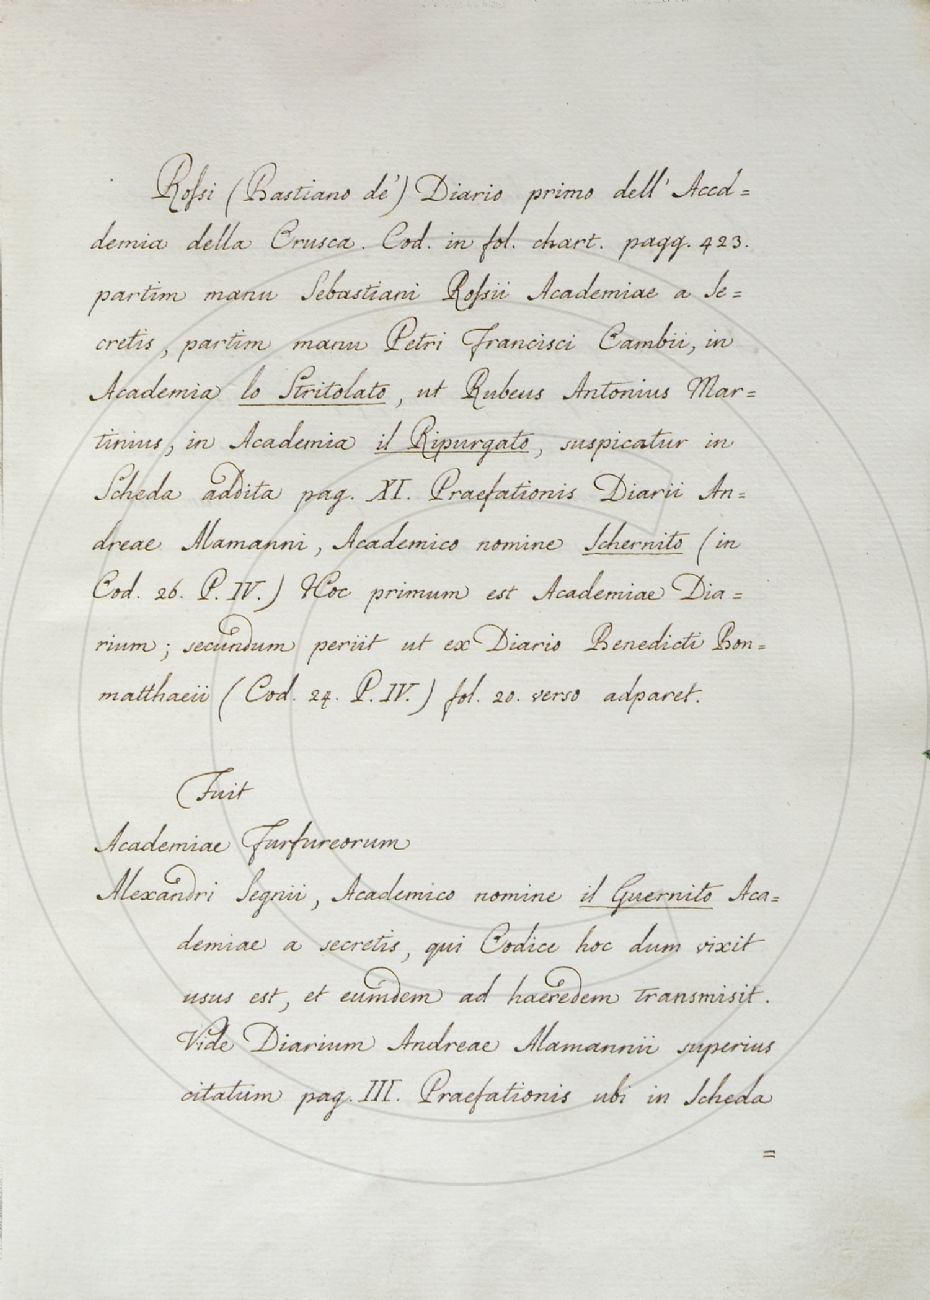 Rossi (Bastiano de') Diario primo dell' Acca=
demia della Crusca. Cod. in fol. chart. pagg. 423.
partim manu Sebastiani Rossii Academiae a Se=
cretis, partim manu Petri Francisci Cambii, in
Academia lo Stritolato, ut Rubeus Antonius Mar=
tinius, in Academia il Ripurgato, suspicatur in
Scheda addita pag. XI. Praefationis Diarii An=
dreae Alamanni, Academico nomine Schernito (in
Cod. 26. P. IV.) Hoc primum est Academiae Dia=
rium; secundum periit ut ex Diario Benedicti Bon=
matthaeii (Cod. 24. P. IV.) fol. 20. verso adparet.
Fuit
Academiae Furfureorum
Alexandri Segnii, Academico nomine il Guernito Aca=
demiae a secretis, qui Codice hoc dum vixit
usus est, et eumdem ad haeredem transmisit.
Vide Diarium Andreae Alamannii superius
citatum pag. III. Praefationis ubi in Scheda
=